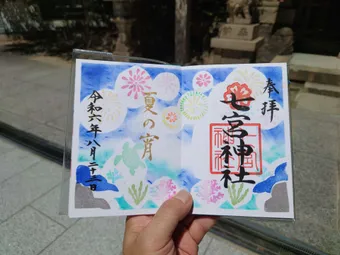 奉拝
七宮神社
夏の宵
令和六年八月二十二日